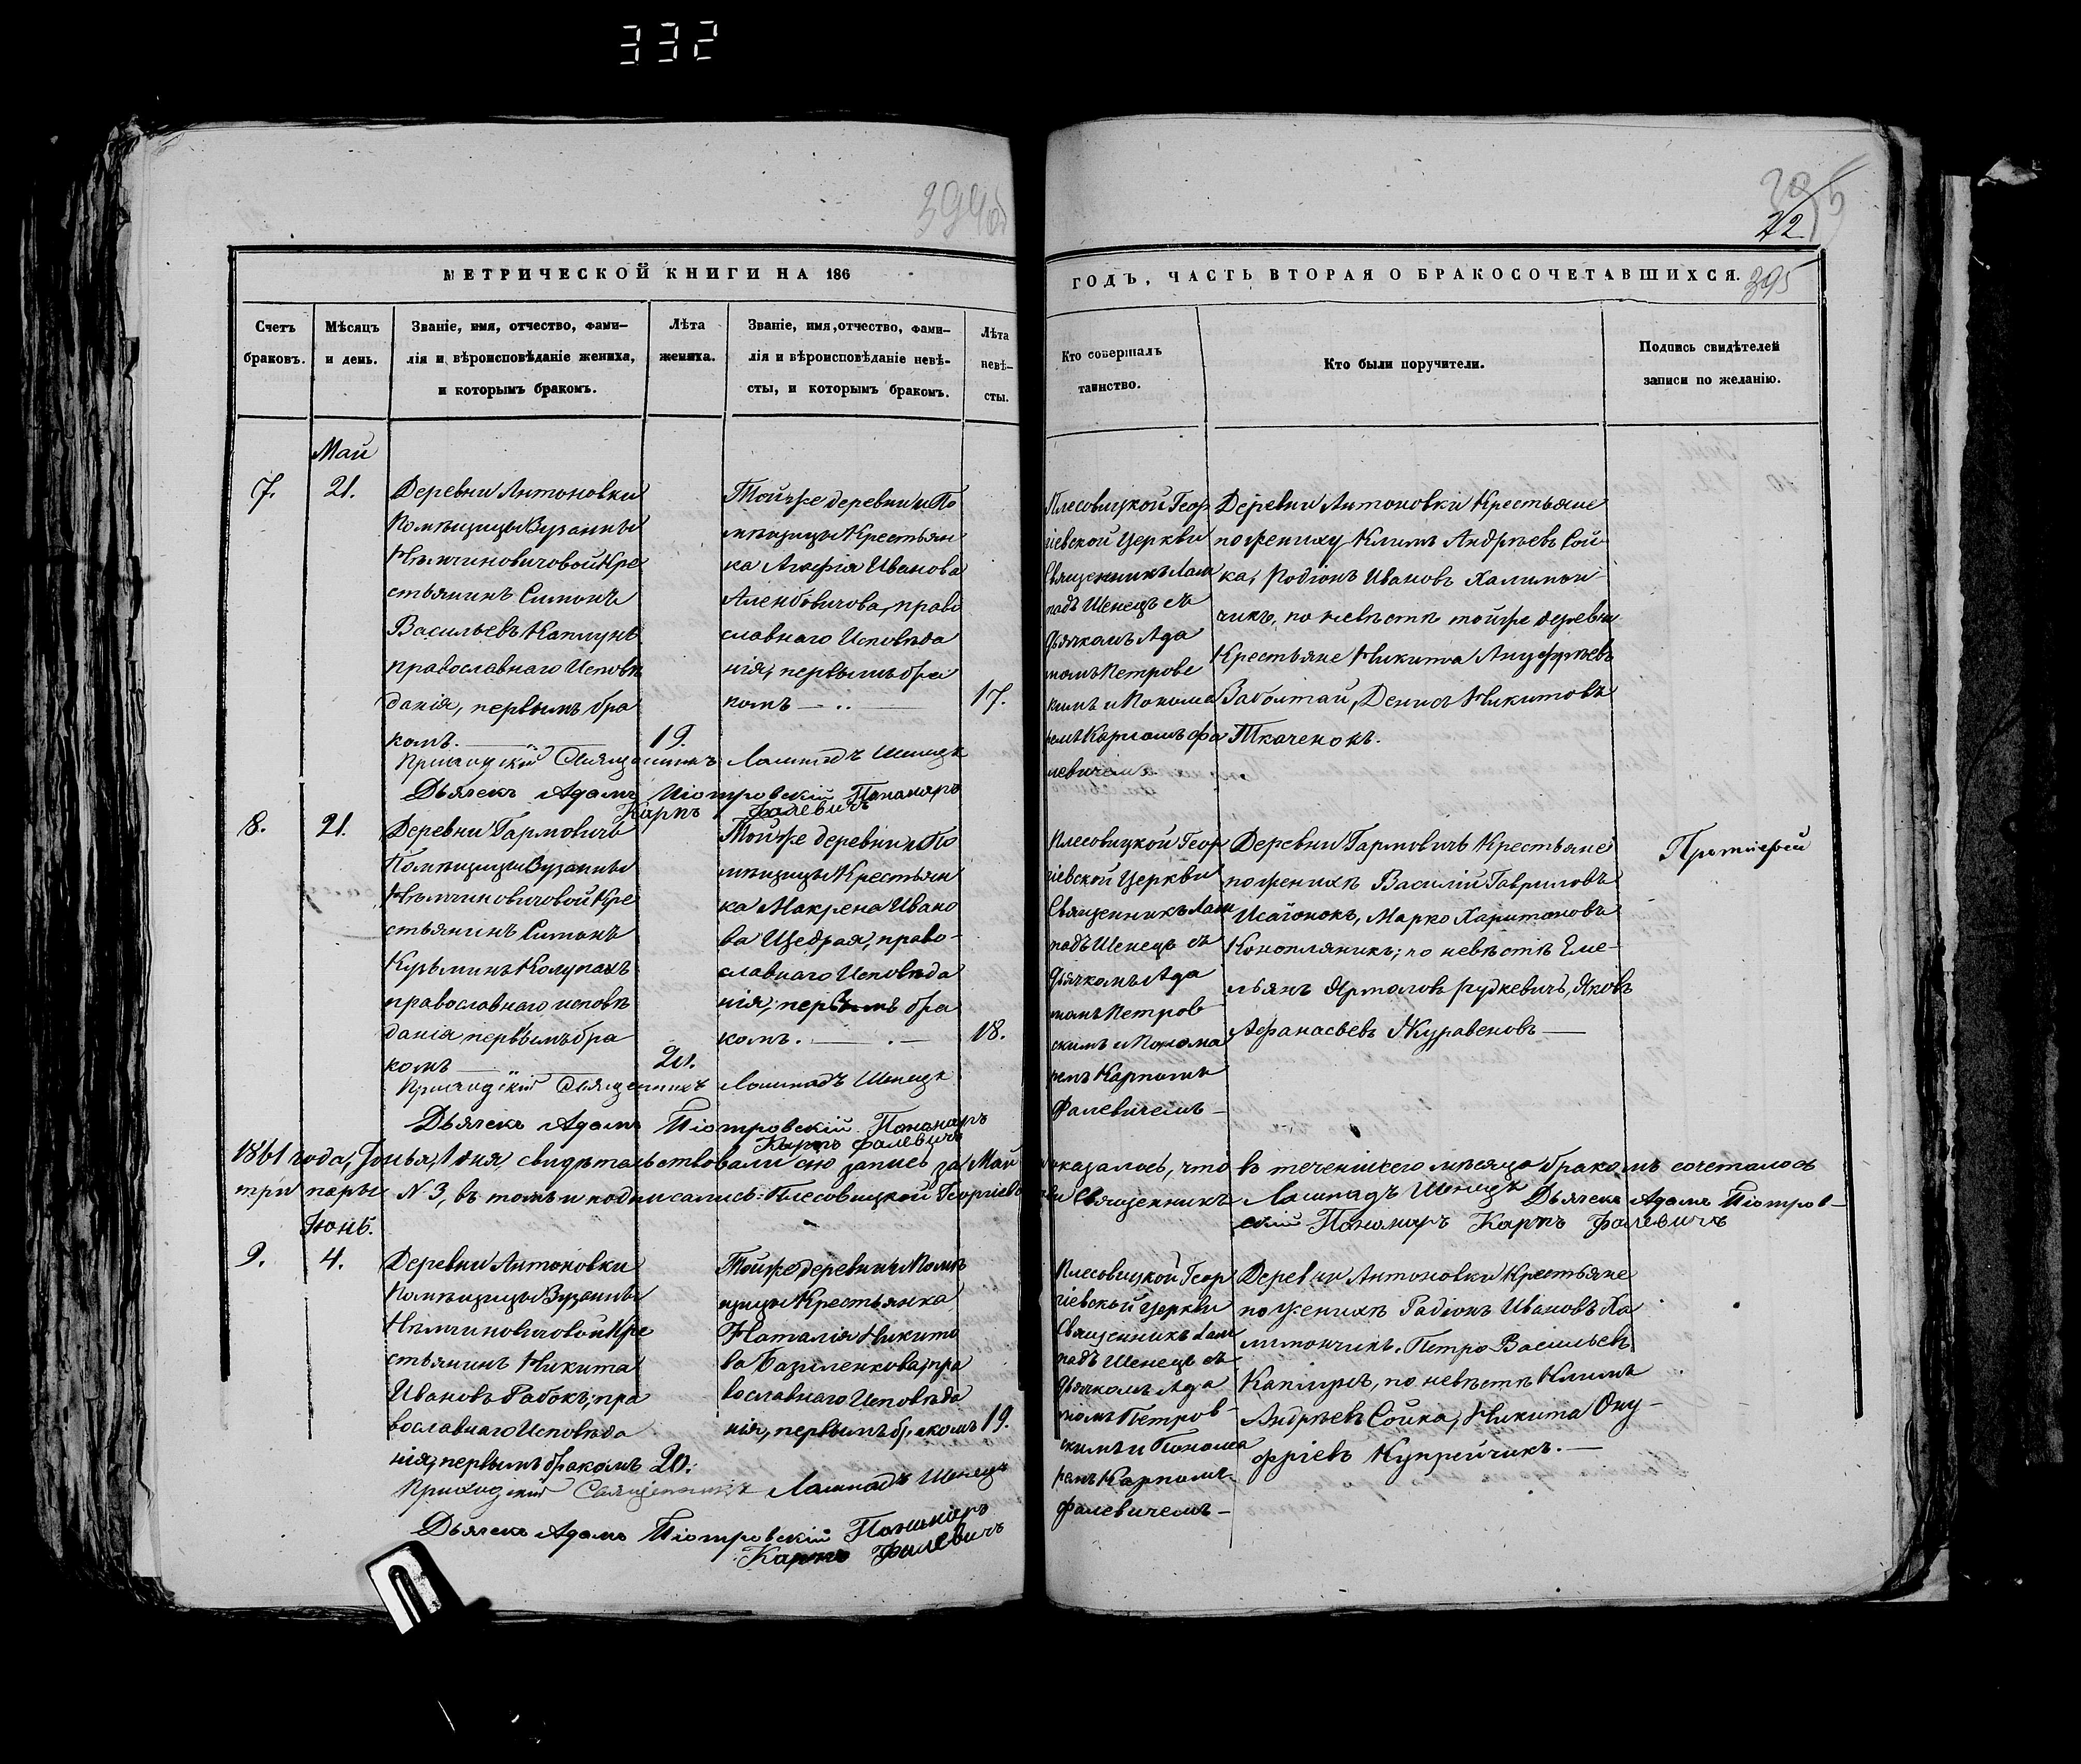 332
394об
395
22
МЕТРИЧЕСКОЙ КНИГИ НА 186
Счетъ
браковъ.
Мѣсяцъ
и день.
Званіе, имя, отчество, фами-
лія и вѣроисповѣданіе жениха,
и которымъ бракомъ.
Лѣта
жениха.
Званіе, имя, отчество, фами-
лія и вѣроисповѣданіе невѣ-
сты, и которымъ бракомъ.
Лѣта
невѣ-
сты.
ГОДЪ, ЧАСТЬ ВТОРАЯ О БРАКОСОЧЕТАВШИХСЯ.
395
Кто совершалъ
таинство.
Кто были поручители.
Подпись свидѣтелей
записи по желанію.
Май
7.
21.
Деревни Антоновки
Помѣщицы Зузанны
Нѣмчиновичовой Кре
стьянинъ Симонъ
Васильевъ Каплунъ
православнаго Исповѣ
данія, первымъ бра
комъ.
19.
Тойже деревни и По
мѣщицы Крестьян
ка Агафія Иванова
Аленбовичова, право
славнаго Исповѣда
нія, первымъ бра
комъ
17.
Плесовицкой Геор
гіевской Церкви
Священникъ Лам
падъ Шенецъ съ
Дьячкомъ Ада
момъ Петровс
кимъ и Понома
ремъ Карпомъ Фа
левичемъ.
Деревни Антоновки Крестьяне
по жениху Климъ Андрѣевъ Сой
ка, Родіонъ Ивановъ Халимон-
чикъ, по невѣстѣ тойже деревни
Крестьяне Никита Анцефѣевъ
Заболтай, Денисъ Никитовъ
Ткаченокъ.
Приходскій Священникъ Лампадъ Шенецъ
Дьячекъ Адамъ Піотровскій Пономаръ
Карпъ Фалевичъ
8.
21.
Деревни Гармовичъ
Помѣщицы Зузанны
Нѣмчиновичовой Кре
стьянинъ Симонъ
Кузьминъ Колупахъ
православнаго исповѣ
данія первымъ бра
комъ
20.
Тойже деревни и По
мѣщицы Крестьян
ка Макрена Ивано
ва Щедрая, право-
славнаго Исповѣда
нія, первымъ бра
комъ.
18.
Плесовицкой Геор
гіевской Церкви
Священникъ Лам
падъ Шенецъ съ
Дьячкомъ Ада
момъ Петров
скимъ и Понома
ремъ Карпомъ
Фалевичемъ
Деревни Гармовичъ Крестьяне
по женихѣ Василій Гавриловъ
Исаіонокъ, Марко Харитоновъ
Конопляникъ; по невѣстѣ Еме-
льянъ Ярмоловъ Рудкевичъ, Яковъ
Афанасьевъ Журавеновъ
Протоіерей
Приходскій Священникъ Лампадъ Шенецъ
Дьячекъ Адамъ Піотровскій Пономаръ
Карпъ Фалевичъ
1861 года, Іюнья, 1 дня, свидѣтельствовали сію запись за Май
оказалось, что въ теченіи сего мѣсяца бракомъ сочеталось
три пары N 3, въ томъ и подписались: Плесовицкой Георгіевс
Священникъ Лампадъ Шенецъ Дьячекъ Адамъ Піотров-
скій Пономаръ Карпъ Фалевичъ
Іюнь.
9.
4.
Деревни Антоновки
Помѣщицы Зузанны
Нѣмчиновичовой Кре
стьянинъ Никита
Ивановъ Рабокъ, пра
вославнаго Исповѣда
нія, первымъ бракомъ
20.
Тойже деревни и Помѣ
щицы Крестьянка
Наталія Никито
ва Базиленкова, пра
вославнаго Исповѣда
нія, первымъ бракомъ
19.
Плесовицкой Геор
гіевской Церкви
Священникъ Лам
падъ Шенецъ съ
Дьячкомъ Ада
момъ Петров-
скимъ и Понома
ремъ Карпомъ
Фалевичемъ
Деревни Антоновки Крестьяне
по женихѣ Радіонъ Ивановъ Ха
лимончикъ, Петро Васильевъ
Каплунъ, по невѣстѣ Климъ
Андрѣевъ Сойка, Никита Ону-
фріевъ Купрейчикъ.
Приходскій Священникъ Лампадъ Шенецъ
Дьячекъ Адамъ Піотровскій Пономаръ
Карпъ Фалевичъ